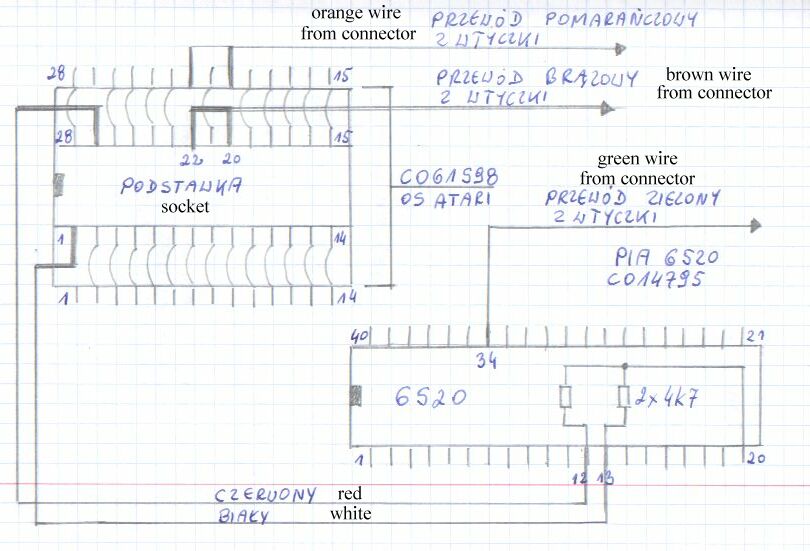 orange wire
from connector
PRZEWÓD POMARAŃCZOWY
Z WTYCZKI
28
15
PRZEWÓD BRĄZOWY
Z WTYCZKI
brown wire
from connector
28
15
22
20
PODSTAWKA
socket
CO61598
OS ATARI
green wire
from connector
PRZEWÓD ZIELONY
Z WTYCZKI
1
14
PIA 6520
CO14795
1
14
40
21
34
6520
2x4k7
1
20
12
13
CZERWONY
red
BIAŁY
white